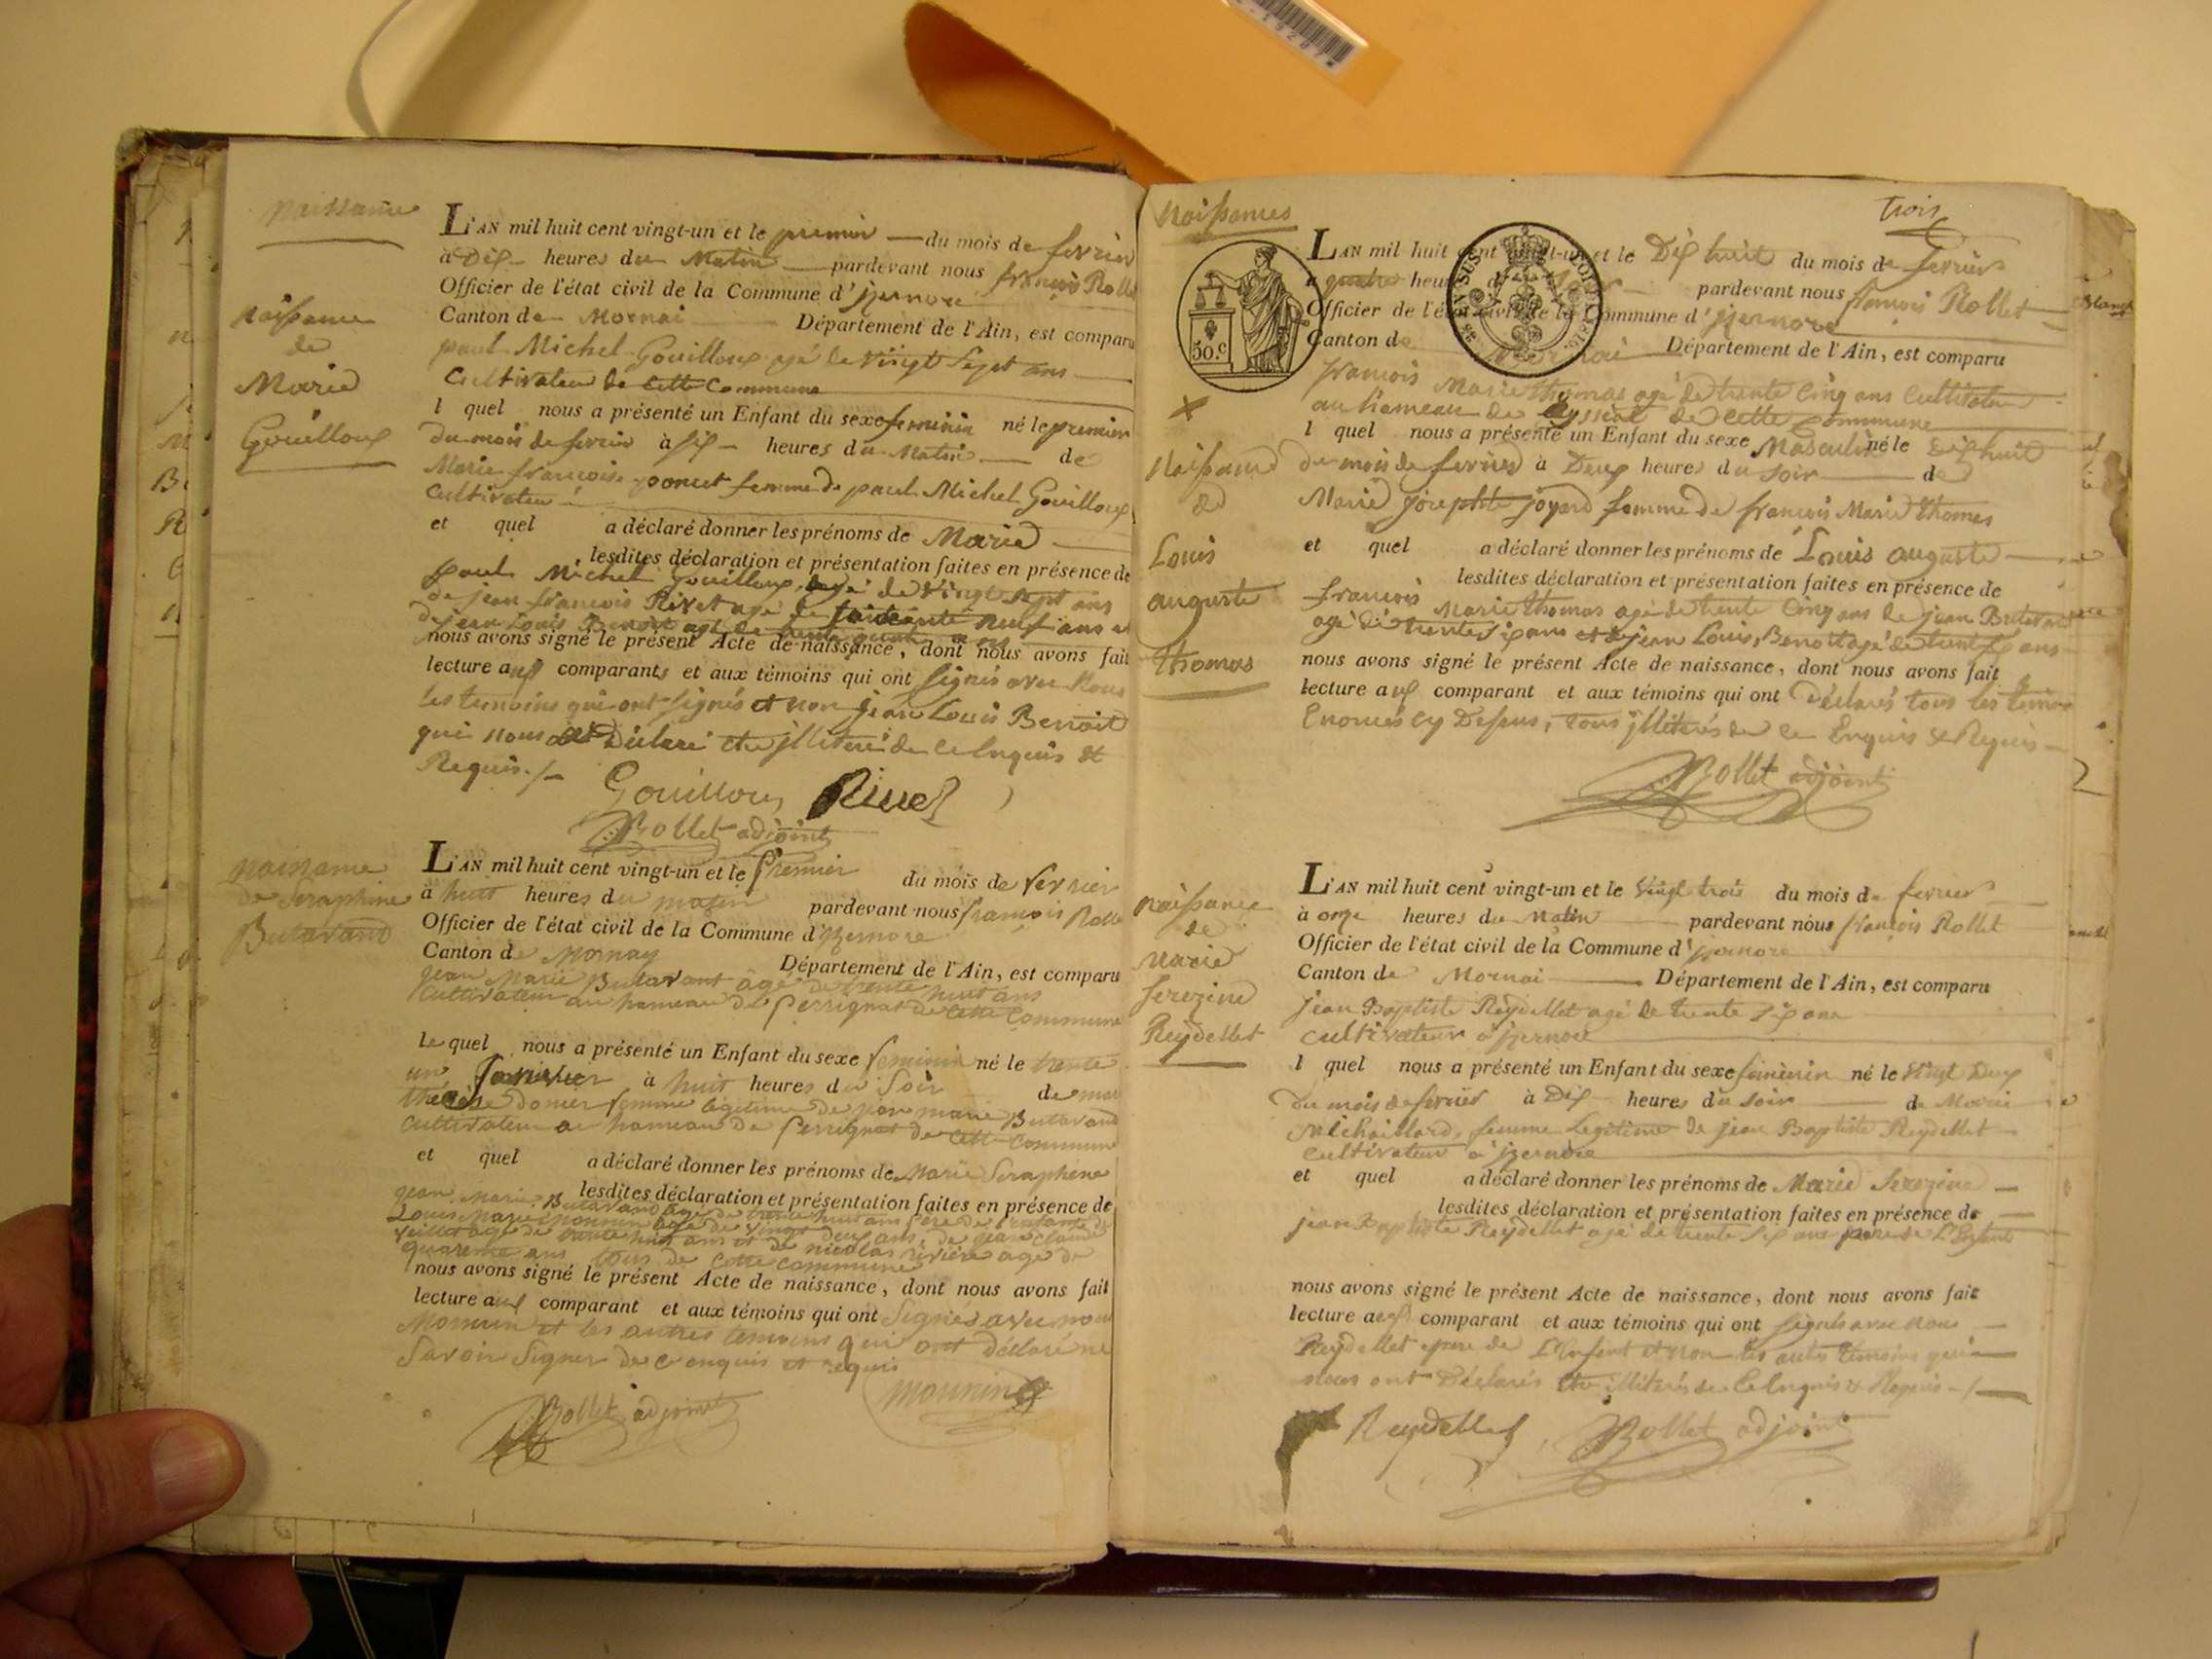 Naissance
Naissance
de
Marie
Gouilloux
L'AN mil huit cent vingt-un et le premier du mois de fevrier
à Dix heures du Matin pardevant nous françois Rollet
Officier de l'état civil de la Commune d'jzernore
Canton de Mornai Département de l'Ain, est comparu
paul Michel Gouilloux agé de vingt sept ans
Cultivateur de cette Commune
l quel nous a présenté un Enfant du sexe feminin né le premier
du mois de fevrier à six heures du Matin de
Marie francoise poncet femme de paul Michel Gouilloux
Cultivateur
et quel a déclaré donner les prénoms de Marie
lesdites déclaration et présentation faites en présence de
paul Michel Gouilloux agé de vingt sept ans
de jean francois Rivet agé de soixante neuf ans et
de jean Louis Benoit agé de trente quatre ans
nous avons signé le présent Acte de naissance, dont nous avons fait
lecture aux comparants et aux témoins qui ont signés avec Nous
les temoins qui ont signés et non jean Louis Benoit
qui nous a Déclaré etre jlliteré de ce Enquis et
Requis ./-
Gouilloux Rivet
Rollet adjoint
Naissance
de Seraphine
Butavand
L'AN mil huit cent vingt-un et le Premier du mois de fevrier
à huit heures du matin pardevant nous françois Rollet
Officier de l'état civil de la Commune d'Izernore
Canton de Mornay Département de l'Ain, est comparu
jean Marie Butavant âgé de trente huit ans
Cultivateur au hameau de Perrignat de cette Commune
le quel nous a présenté un Enfant du sexe feminin né le trente
un Janvier à huit heures du Soir de
femme légitime de jean marie Butavand
Cultivateur au hameau de Perrignat de cette Commune
et quel a déclaré donner les prénoms de Marie Seraphine
lesdites déclaration et présentation faites en présence de
jean Marie Butavand âgé de trente huit ans père de l'enfant de
Louis Marie Mounin âgé de vingt deux ans, de jean claude
Veillet âgé de trente huit ans et de nicolas rivière âgé de
quarente ans tous de cette commune
nous avons signé le présent Acte de naissance, dont nous avons fait
lecture aux comparant et aux témoins qui ont Signés avec nous
Mounin et les autres temoins qui ont déclaré ne
Savoir Signer de ce enquis et requis
Mounin
Rollet adjoint
Naissances
trois
50.c
L'AN mil huit cent vingt-un et le Dix huit du mois de fevrier
à quatre heures du soir pardevant nous françois Rollet
Officier de l'état civil de la Commune d'jzernore
Canton de Mornai Département de l'Ain, est comparu
francois Marie thomas agé de trente Cinq ans Cultivateur
au hameau de de cette Commune
l quel nous a présenté un Enfant du sexe Masculin né le Dix huit
du mois de fevrier à Deux heures du soir de
Marie josephte joyard femme de francois Marie thomas
et quel a déclaré donner les prénoms de Louis auguste
lesdites déclaration et présentation faites en présence de
francois Marie thomas agé de trente Cinq ans de jean Butavand
agé de trente six ans et de jean Louis Benoit agé de trente ans
nous avons signé le présent Acte de naissance, dont nous avons fait
lecture aux comparant et aux témoins qui ont Déclarés tous les temoins
Enoncés cy Dessus, tous jlliterés de ce Enquis & Requis
Rollet adjoint
Naissance
de
Louis
auguste
thomas
Naissance
de
Marie
Serezine
Reydellet
L'AN mil huit cent vingt-un et le vingt trois du mois de fevrier
à onze heures du Matin pardevant nous françois Rollet
Officier de l'état civil de la Commune d'jzernore
Canton de Mornai Département de l'Ain, est comparu
jean Baptiste Reydellet agé de trente six ans
cultivateur à jzernore
l quel nous a présenté un Enfant du sexe feminin né le vingt Deux
du mois de fevrier à Dix heures du soir de Marie
Michaillard, femme Legitime de jean Baptiste Reydellet
cultivateur à jzernore
et quel a déclaré donner les prénoms de Marie Serezine
lesdites déclaration et présentation faites en présence de
jean Baptiste Reydellet agé de trente six ans pere de L'Enfant
nous avons signé le présent Acte de naissance, dont nous avons fait
lecture aux comparant et aux témoins qui ont signés avec Nous
Reydellet pere de L'Enfant et non les autres temoins qui
nous ont Déclarés etre illiterés de ce Enquis & Requis ./-
Reydellet, Rollet adjoint